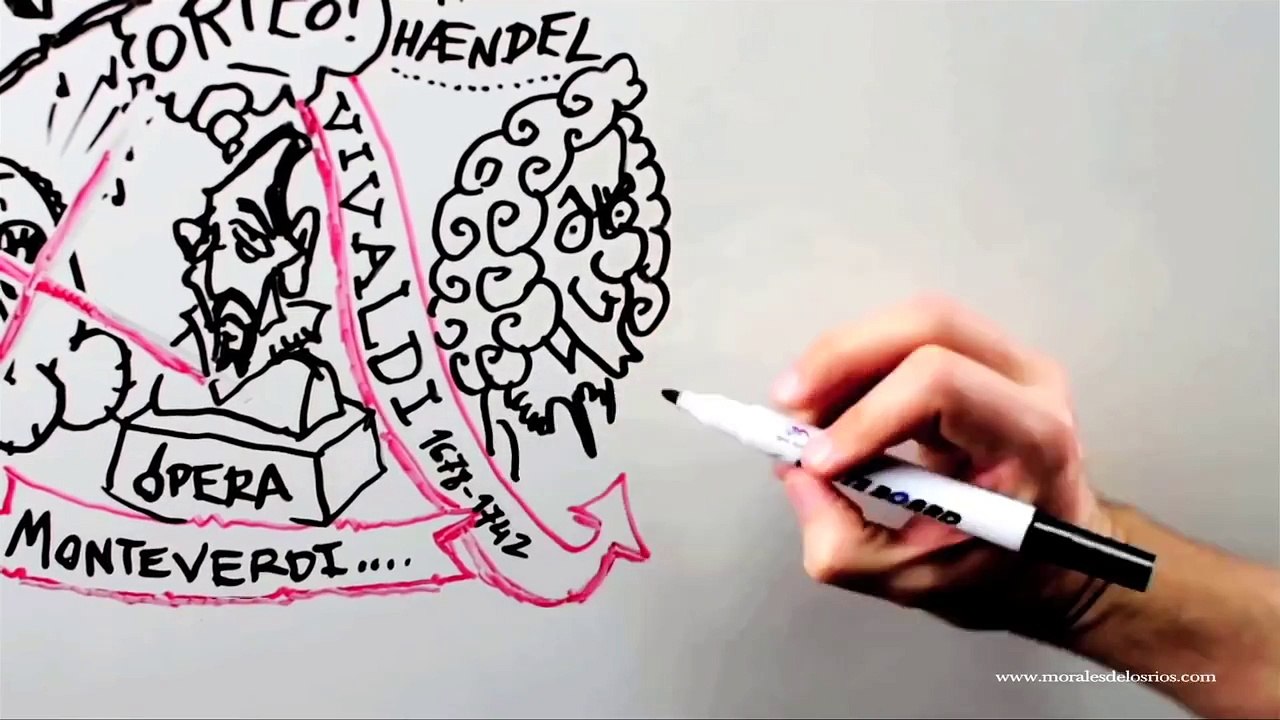 ORFEO!
HÆNDEL
VIVALDI
1678-1742
ÓPERA
MONTEVERDI....
BOARD
www.moralesdelosrios.com